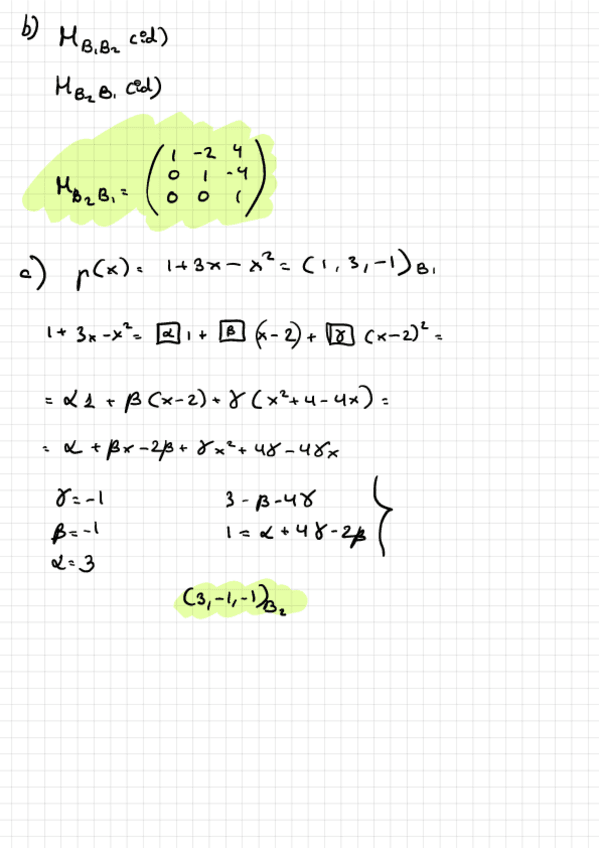 b) M_{B₁B₂} (id)
M_{B₂B₁} (id)
M_{B₂B₁} = ( 1 -2 4
0 1 -4
0 0 1 )
a) p(x) = 1+3x-x² = (1, 3, -1)_{B₁}
1+3x-x² = α 1 + β (x-2) + γ (x-2)² =
= α1 + β(x-2) + γ(x²+4-4x) =
= α + βx - 2β + γx² + 4γ - 4γx
γ = -1 3 - β - 4γ
β = -1 1 = α + 4γ - 2β }
α = 3
(3, -1, -1)_{B₂}